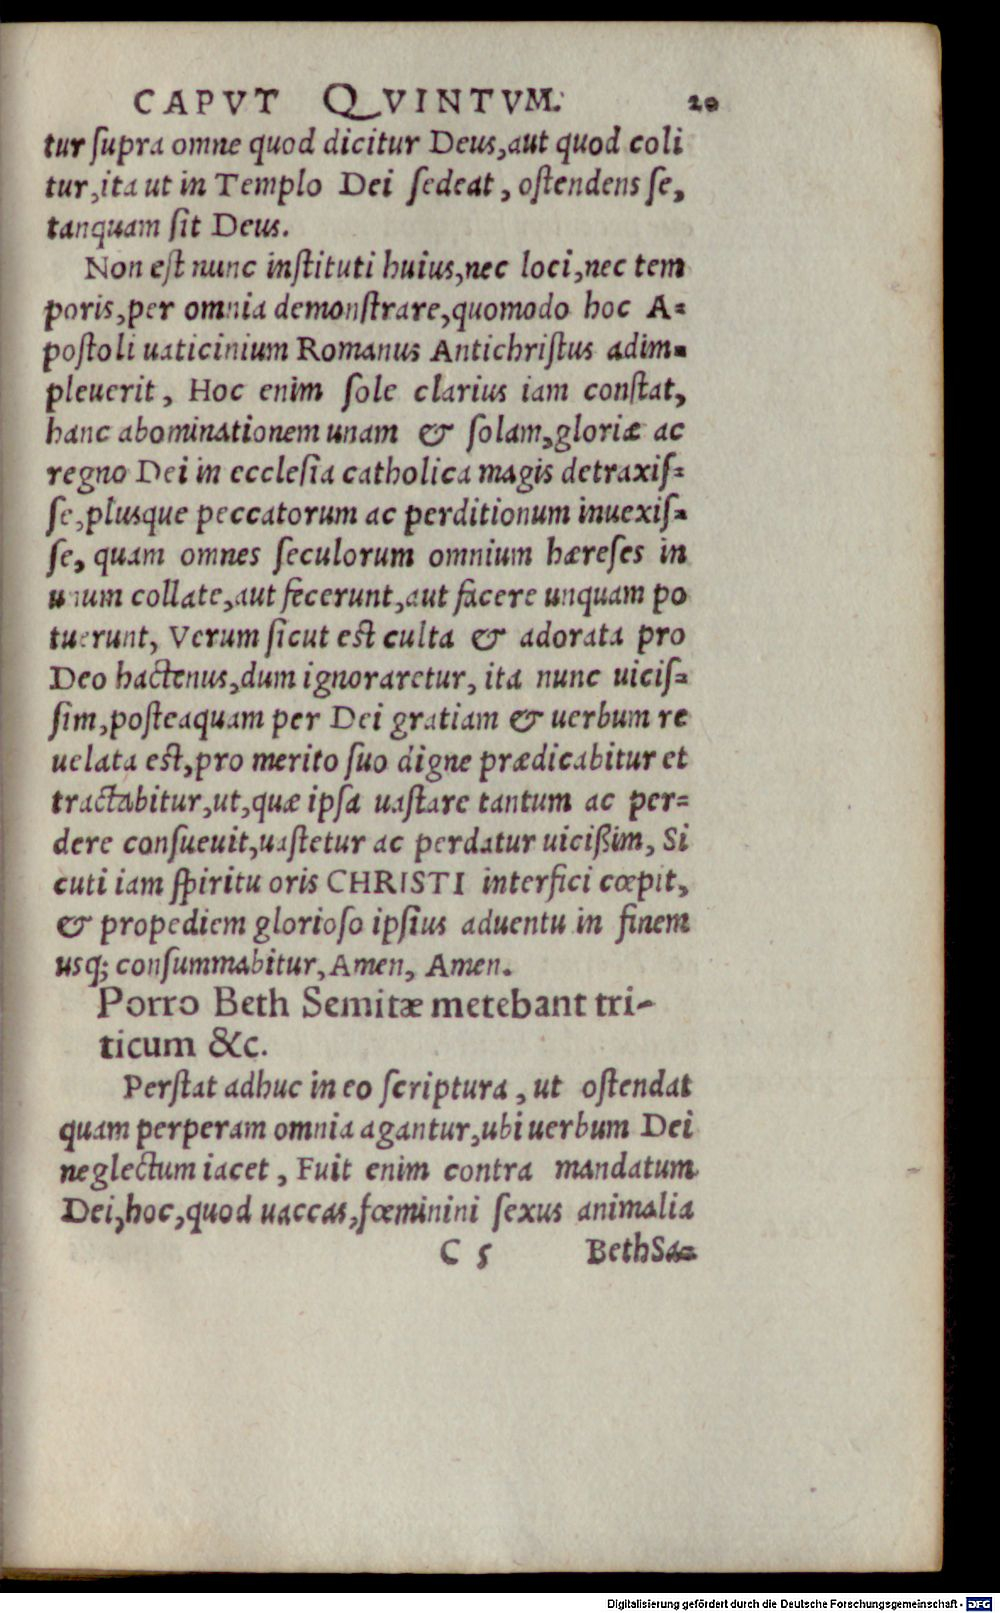 CAPVT QVINTVM. 20
tur ſupra omne quod dicitur Deus,aut quod coli
tur,ita ut in Templo Dei ſedeat, oſtendens ſe,
tanquam ſit Deus.
Non eſt nunc inſtituti huius,nec loci,nec tem
poris,per omnia demonſtrare,quomodo hoc A=
poſtoli uaticinium Romanus Antichriſtus adim=
pleuerit, Hoc enim ſole clarius iam conſtat,
hanc abominationem unam & ſolam,gloriæ ac
regno Dei in eccleſia catholica magis detraxiſ=
ſe,plusque peccatorum ac perditionum inuexiſ=
ſe, quam omnes ſeculorum omnium hæreſes in
unum collate,aut fecerunt,aut facere unquam po
tuerunt, Verum ſicut eſt culta & adorata pro
Deo hactenus,dum ignoraretur, ita nunc uiciſ=
ſim,poſteaquam per Dei gratiam & uerbum re
uelata eſt,pro merito ſuo digne prædicabitur et
tractabitur,ut,quæ ipſa uaſtare tantum ac per=
dere conſueuit,uaſtetur ac perdatur uicißim, Si
cuti iam ſpiritu oris CHRISTI interfici cœpit,
& propediem glorioſo ipſius aduentu in finem
usq; conſummabitur, Amen, Amen.
Porro Beth Semitæ metebant tri-
ticum &c.
Perſtat adhuc in eo ſcriptura, ut oſtendat
quam perperam omnia agantur,ubi uerbum Dei
neglectum iacet, Fuit enim contra mandatum
Dei,hoc,quod uaccas,fœminini ſexus animalia
C 5 BethSa=
Digitalisierung gefördert durch die Deutsche Forschungsgemeinschaft - DFG